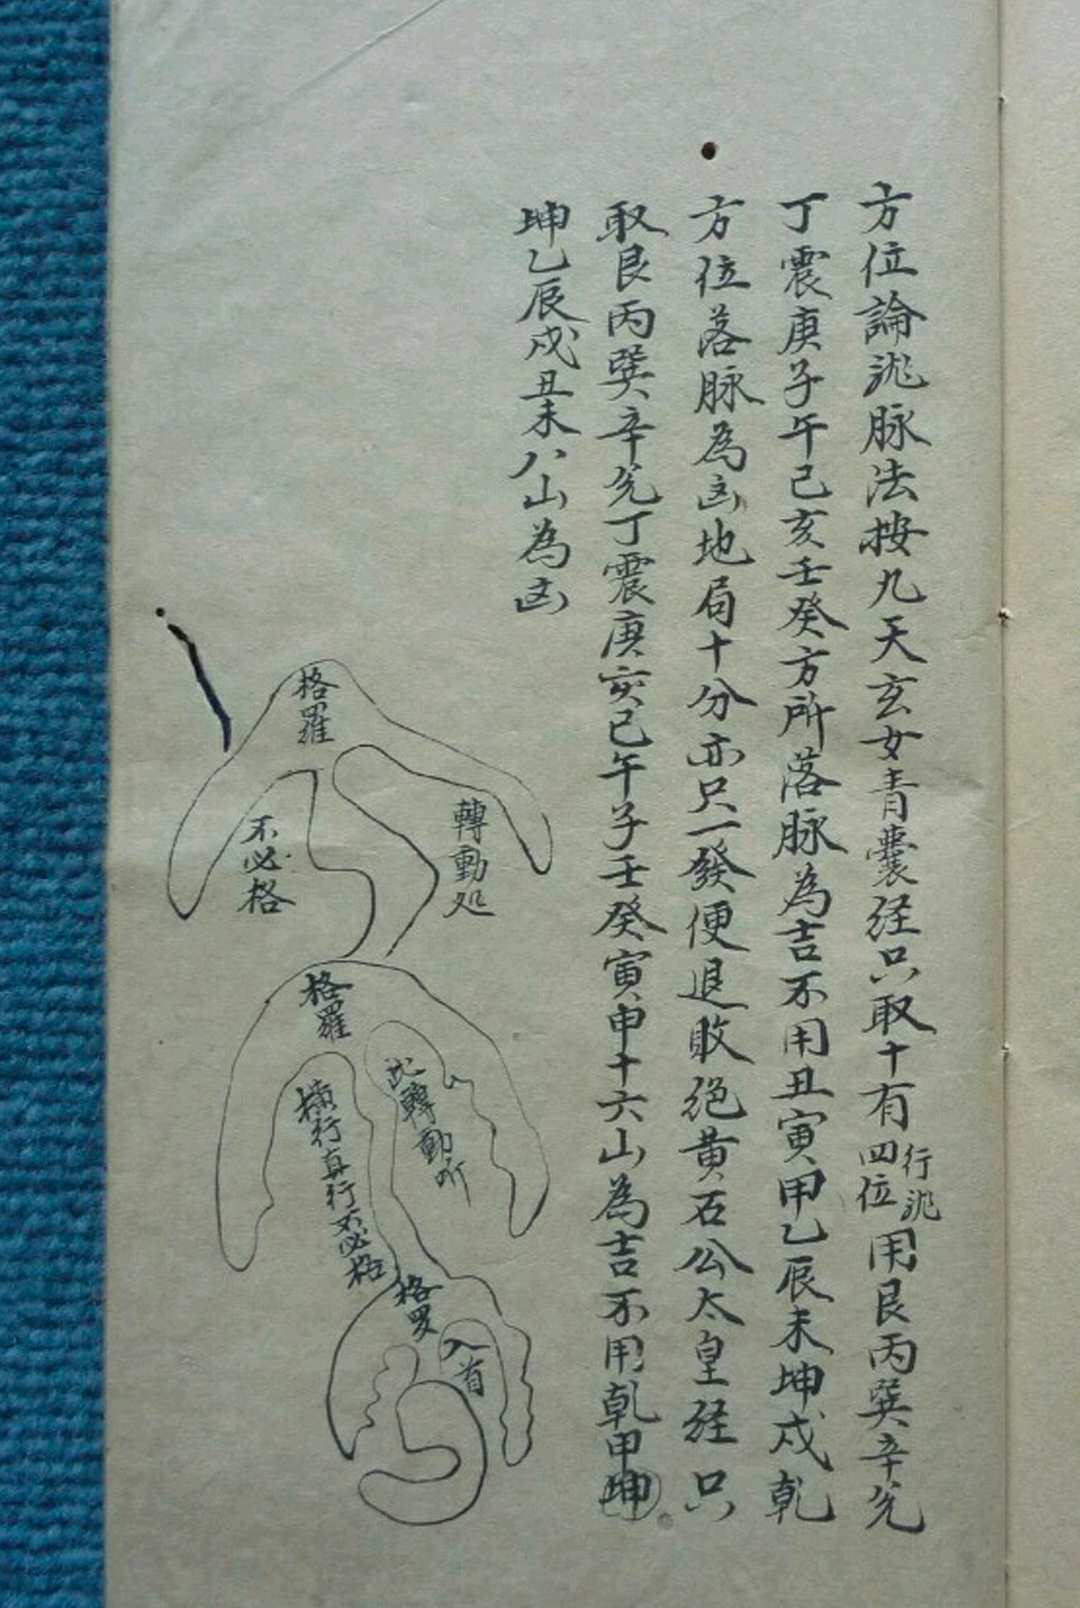 方位論淝脉法按九天玄女青囊经只取十有四位用艮丙巽辛兊
行淝
丁震庚子午己亥壬癸方所落脉為吉不用丑寅甲乙辰未坤戌乾
方位落脉為凶地局十分亦只一發便退敗绝黄石公太皇经只
取艮丙巽辛兊丁震庚亥己午子壬癸寅申十六山為吉不用乾甲坤
坤乙辰戌丑未八山為凶
格羅
轉動処
不必格
格羅
此轉動所
横行真行不必格
格罗
入首